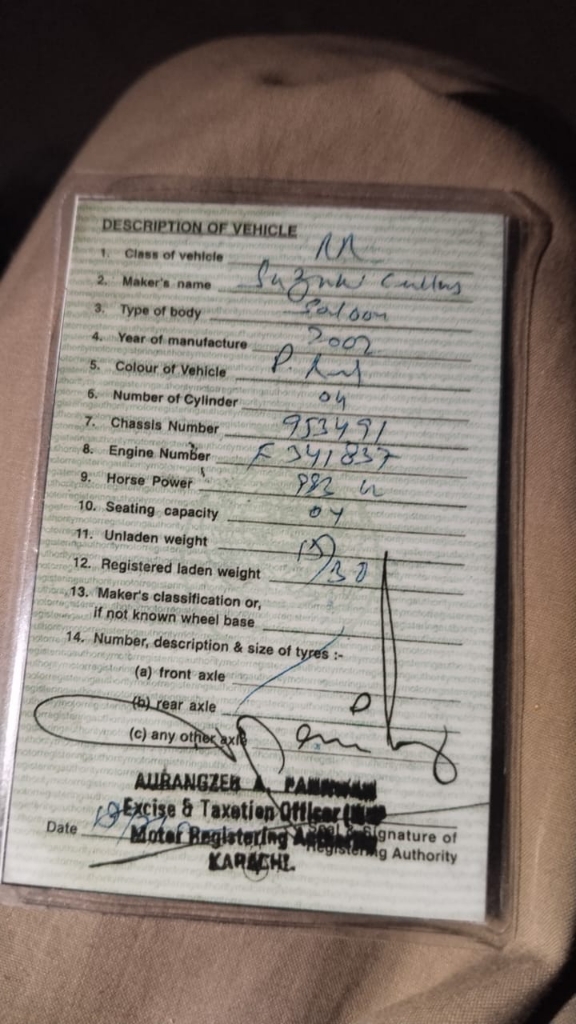 DESCRIPTION OF VEHICLE
1. Class of vehicle
2. Maker's name Suzuki Cultus
3. Type of body Saloon
4. Year of manufacture 2002
5. Colour of Vehicle P.
6. Number of Cylinder 04
7. Chassis Number 953491
8. Engine Number F 341837
9. Horse Power 993
10. Seating capacity 04
11. Unladen weight
12. Registered laden weight
13. Maker's classification or,
if not known wheel base
14. Number, description & size of tyres :-
(a) front axle
(b) rear axle
(c) any other axle
AURANGZEB A.
Excise & Taxation Officer
Date
Motor Registering
Signature of
KARACHI.
Registering Authority